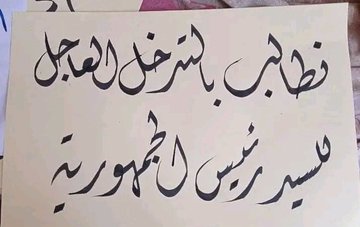 نطالب بالتدخل العاجل
للسيد رئيس الجمهورية